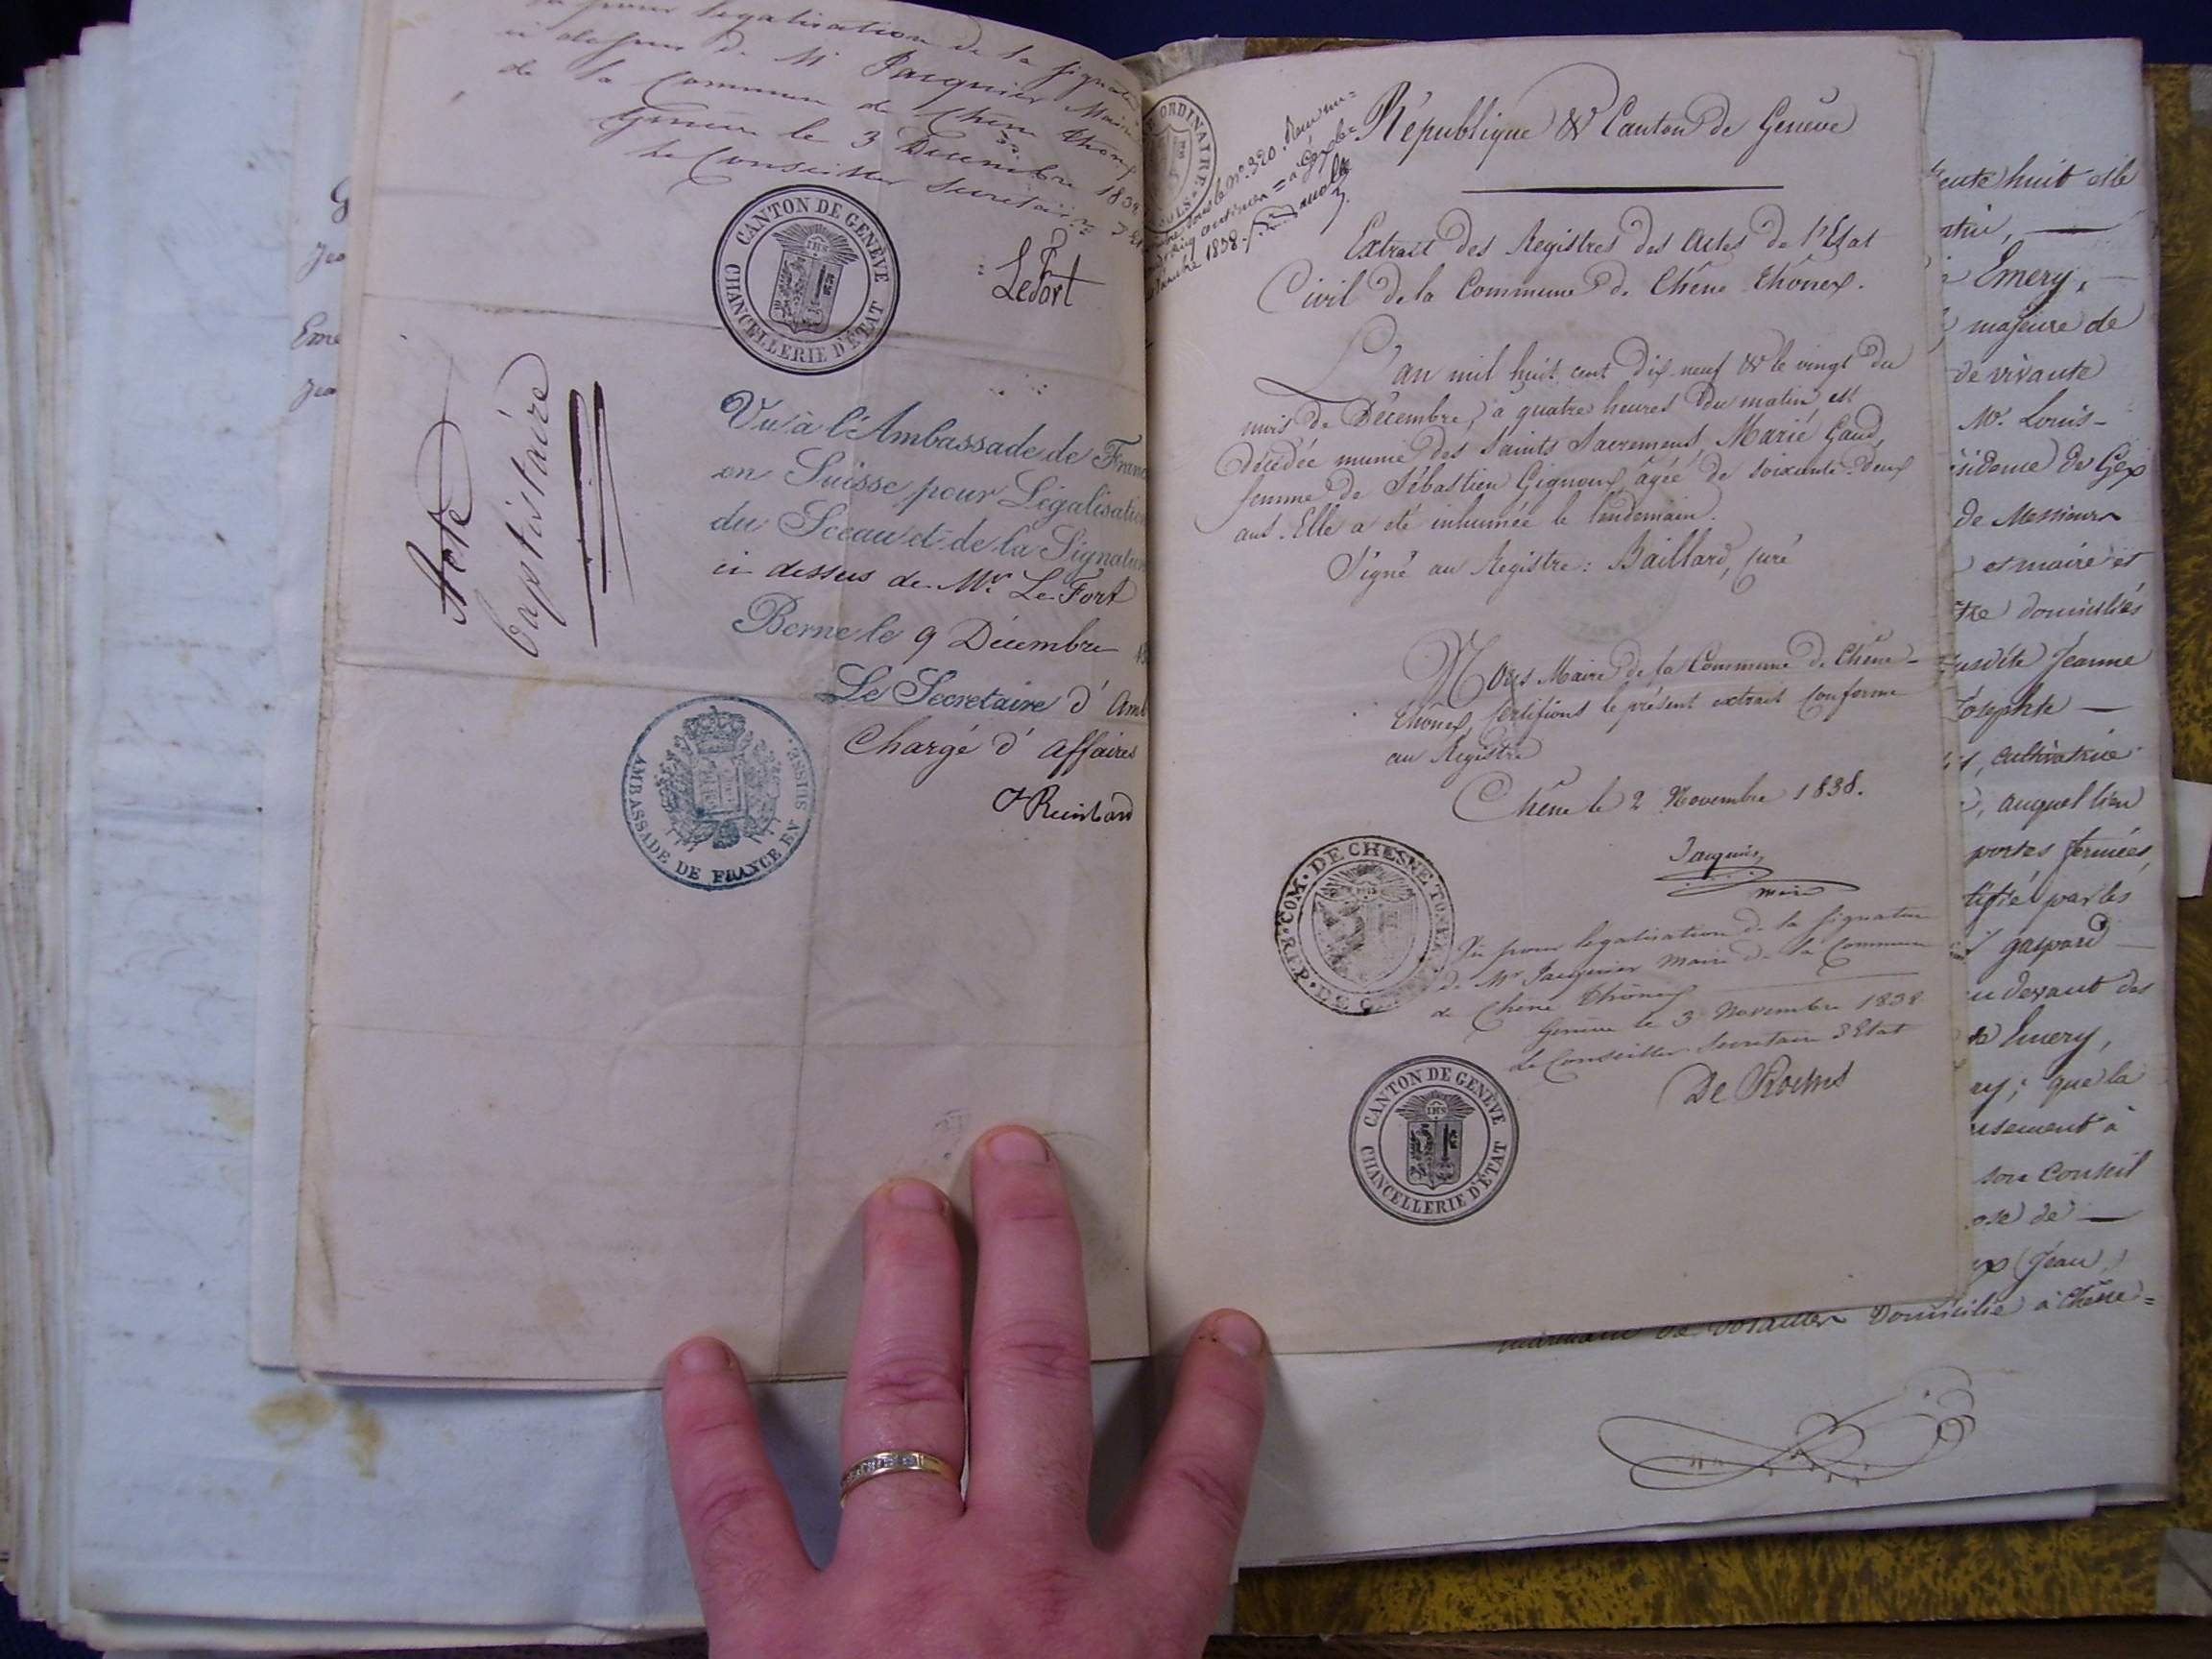 pour legalisation de la signature
ci dessus de Mr Jacquier Maire
de la Commune de Chêne Thônex
Genève le 3 Décembre 1838
Le Conseiller Secretaire d'Et
Lefort
CANTON DE GENÈVE
CHANCELLERIE D'ÉTAT
Acte
baptistaire
Vu à l'Ambassade de Franc
en Suisse pour Légalisatio
du Sceau et de la Signature
ci dessus de Mr. Le Fort
Berne le 9 Décembre 18
Le Secretaire d' Amb
Chargé d' affaires
AMBASSADE DE FRANCE EN SUISSE
ORDINAIRE
sous le No. 320
1838
République & Canton de Genève
Extrait des Registres des Actes de l'Etat
Civil de la Commune de Chêne Thônex.
L'an mil huit cent dix-neuf & le vingt du
mois de Décembre, à quatre heures du matin est
décédée munie des Saints Sacremens, Marie Gaud,
femme de Sébastien Gignoux, âgée de soixante-deux
ans. Elle a été inhumée le lendemain.
Signé au Registre: Baillard, curé
Nous Maire de la Commune de Chêne-
Thônex, certifions le présent extrait conforme
au Registre
Chêne le 2 Novembre 1838.
Jacquier
maire
REP. COM. DE CHESNE TONEX
Vu pour legalisation de la signature
de Mr Jacquier Maire de la Commune
de Chêne Thônex
Genève le 3 Novembre 1838
Le Conseiller Secretaire d'Etat
De Roches
CANTON DE GENÈVE
CHANCELLERIE D'ÉTAT
Jea
Eme
Jea
huit et le
Emery,
majeure de
de vivante
Mr. Louis-
résidence de Gex
de Messieurs
et maire et
domiciliés
susdite Jeanne
Josephte
cultivatrice
, auquel lieu
portes fermées,
par les
gaspard
devant des
Emery,
; que la
à
son Conseil
de
(Jean,)
domicilié à Chêne=